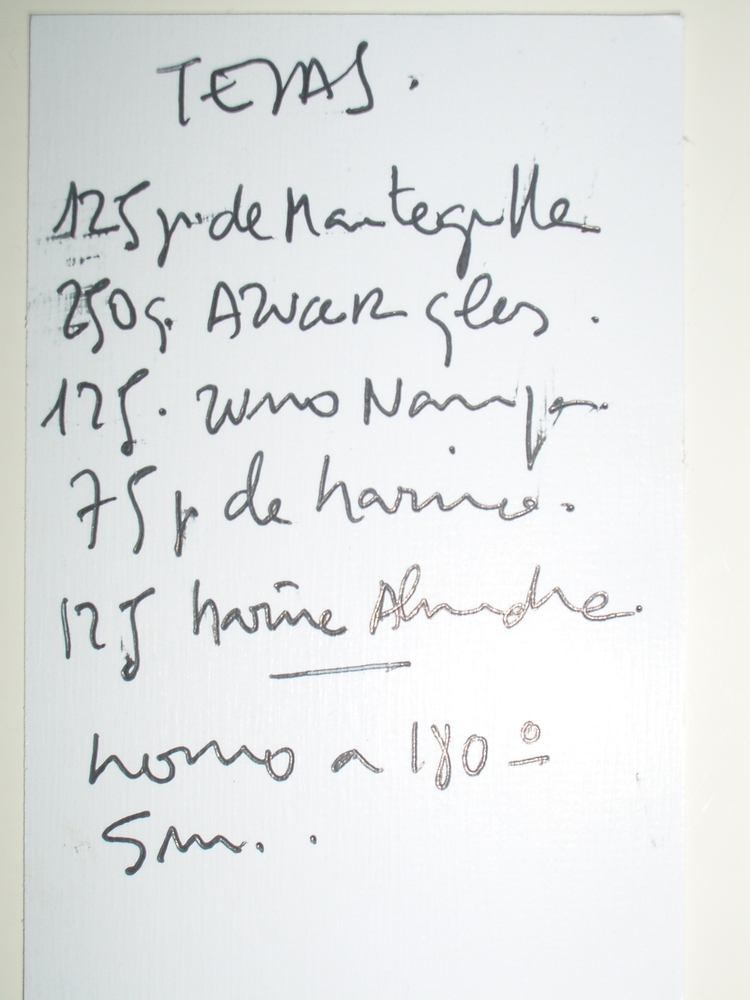 TEJAS.
125 gr. de Mantequilla
250 g. AZUCAR glas.
125. zumo Naranja.
75 gr de harina.
125 harina Almendra.
horno a 180º
5 m..